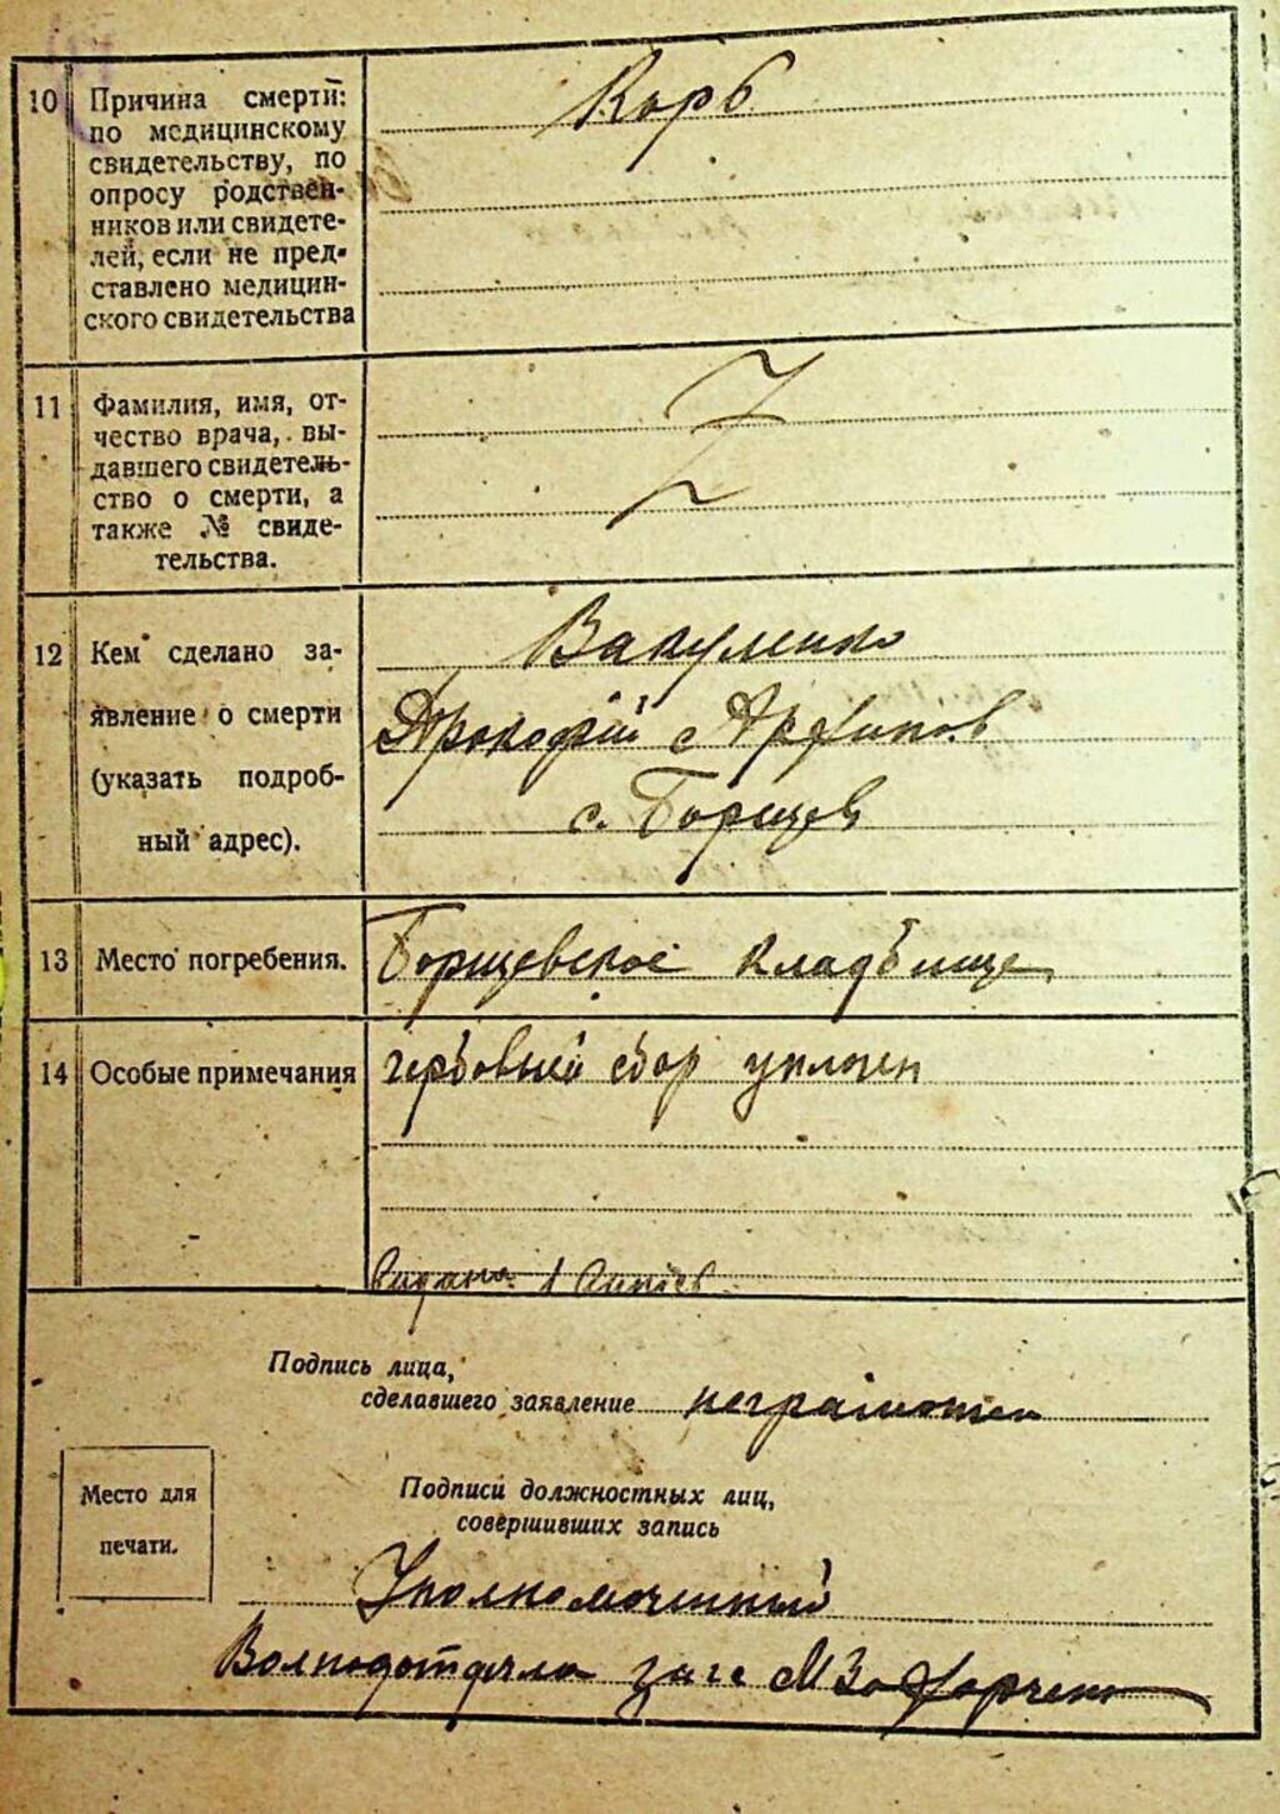 10 Причина смерти:
по медицинскому
свидетельству, по
опросу родствен-
ников или свидете-
лей, если не пред-
ставлено медицин-
ского свидетельства
Корь
11 Фамилия, имя, от-
чество врача, вы-
давшего свидетель-
ство о смерти, а
также № свиде-
тельства.
12 Кем сделано за-
явление о смерти
(указать подроб-
ный адрес).
Вакуленко
Прокофий с Архипов
с. Борщев
13 Место погребения.
Борщевское кладбище
14 Особые примечания
гербовый сбор уплочен
Подпись лица,
сделавшего заявление неграмотен
Подписи должностных лиц,
совершивших запись
Место для
печати.
Уполномоченный
Волподотдела загс М Захарченко